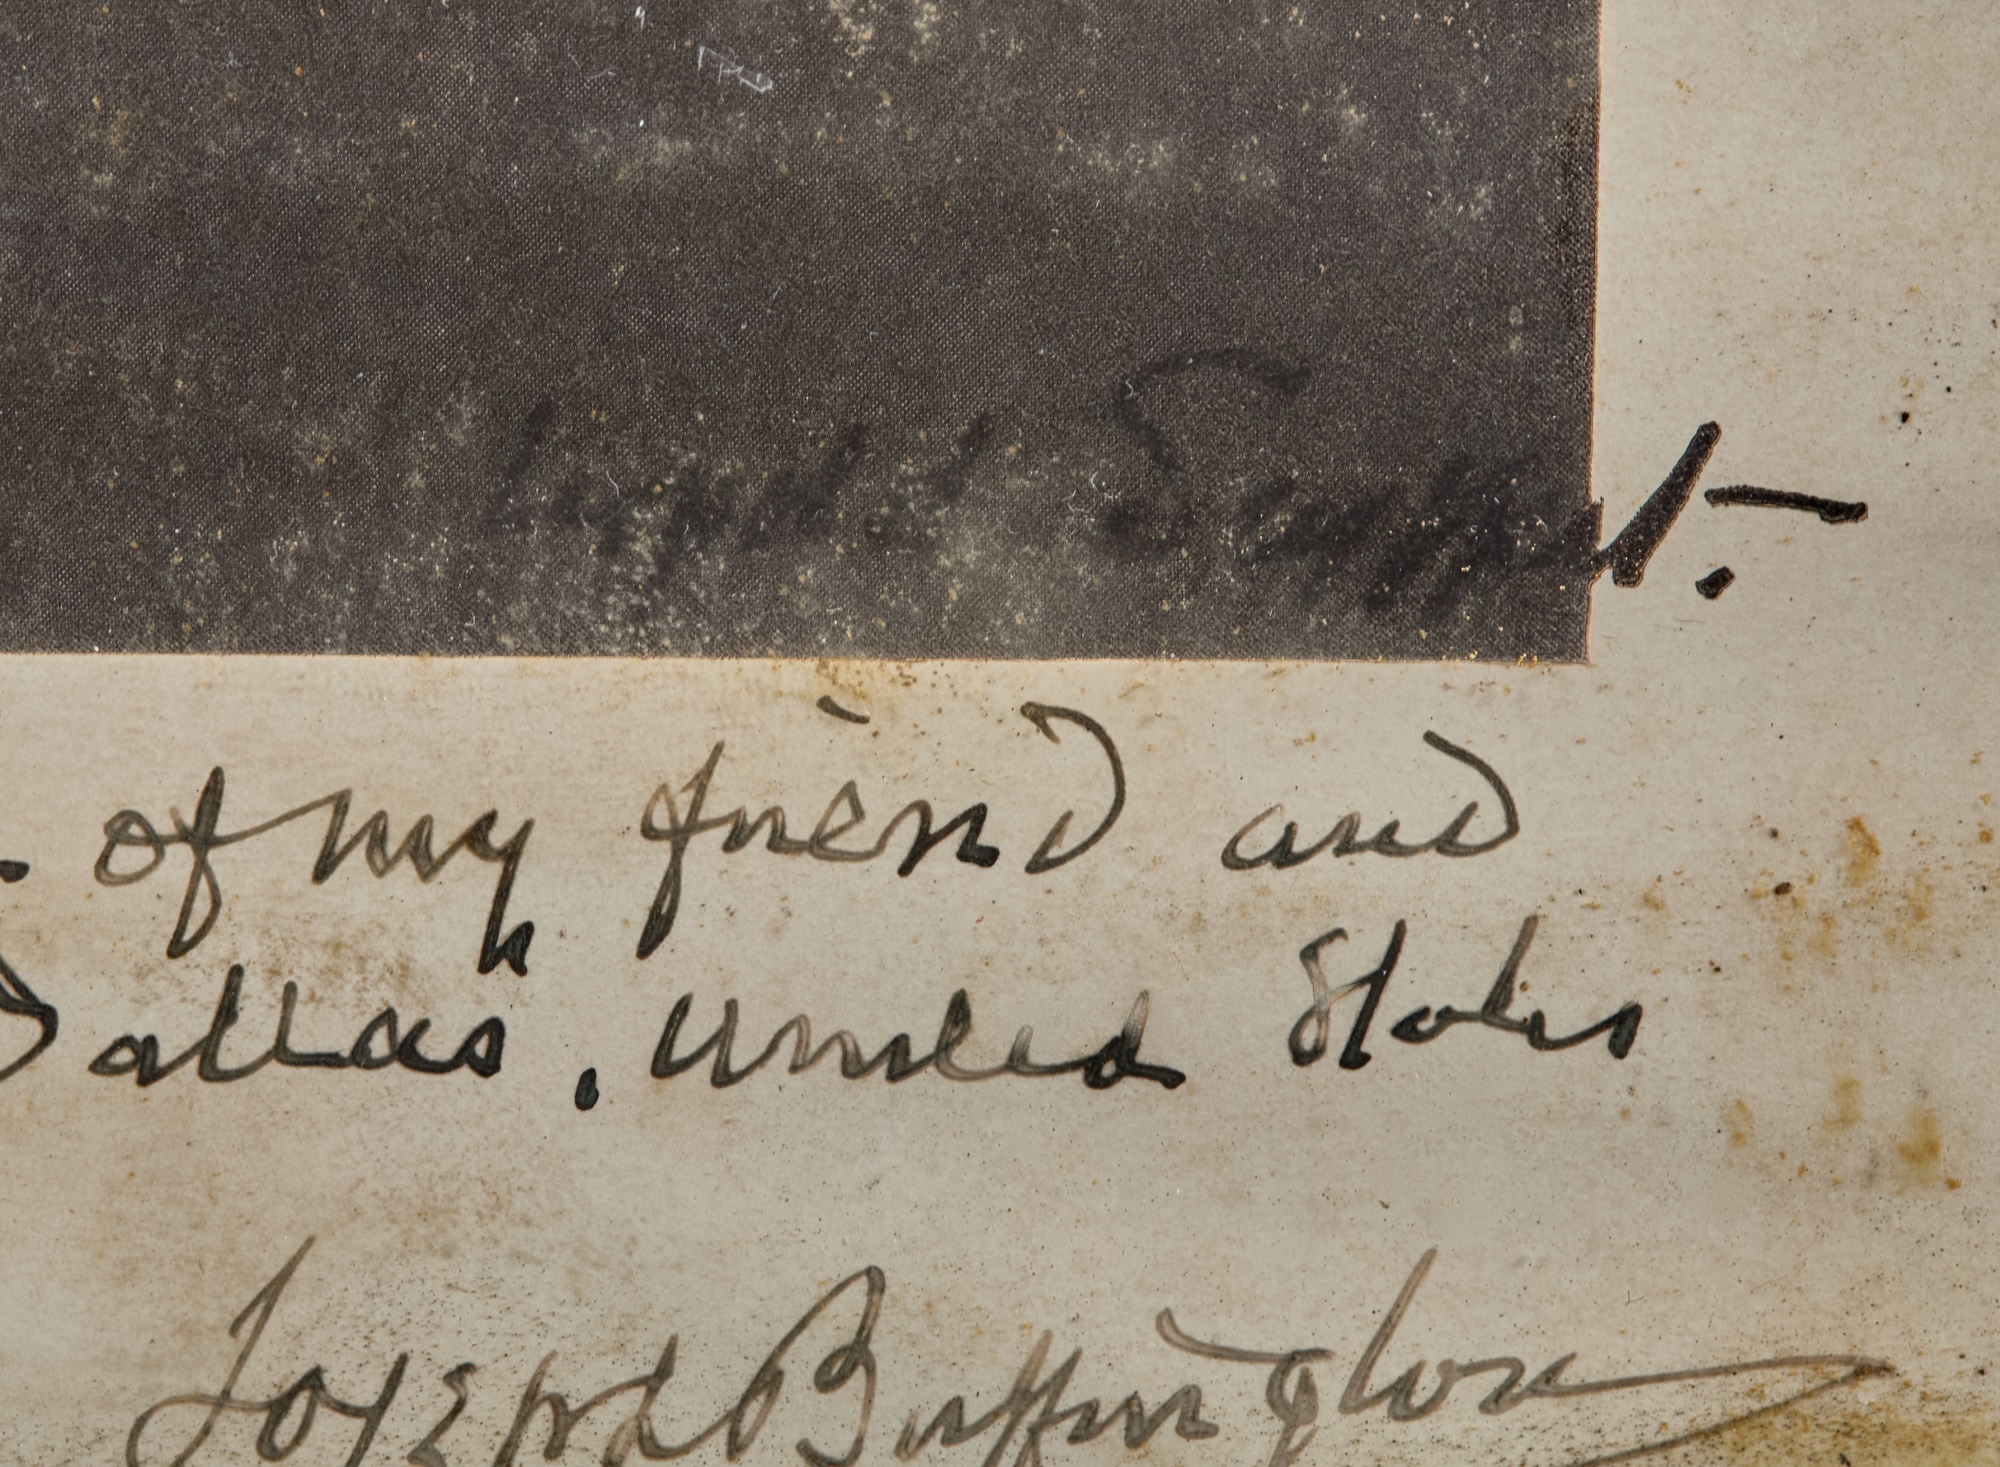 of my friend and
Dallas, United States
Joseph Buffington